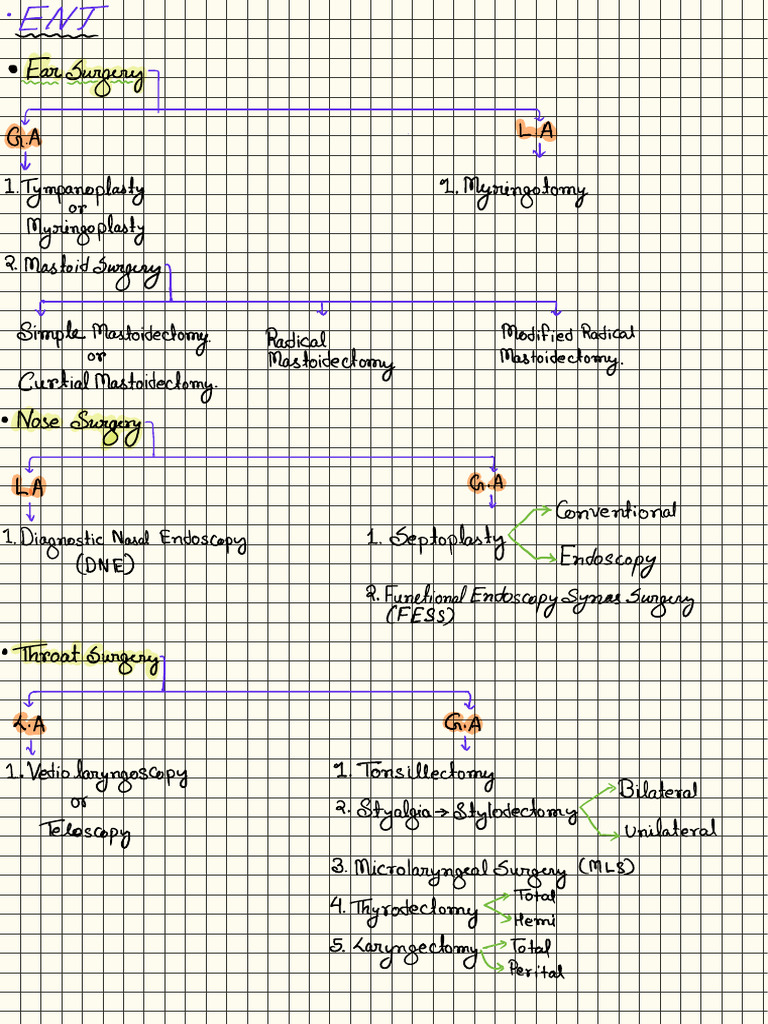 ENT
Ear Surgery
G.A
L.A
1. Tympanoplasty
or
Myringoplasty
1. Myringotomy
2. Mastoid Surgery
Simple Mastoidectomy.
or
Curtial Mastoidectomy.
Radical
Mastoidectomy
Modified Radical
Mastoidectomy.
Nose Surgery
L.A
G.A
1. Diagnostic Nasal Endoscopy
(DNE)
1. Septoplasty
Conventional
Endoscopy
2. Functional Endoscopy Synas Surgery
(FESS)
Throat Surgery
L.A
G.A
1. Vedio laryngoscopy
or
Teloscopy
1. Tonsillectomy
2. Styalgia → Stylodectomy
Bilateral
Unilateral
3. Microlaryngeal Surgery (MLS)
4. Thyrodectomy
Total
Hemi
5. Laryngectomy
Total
Perital